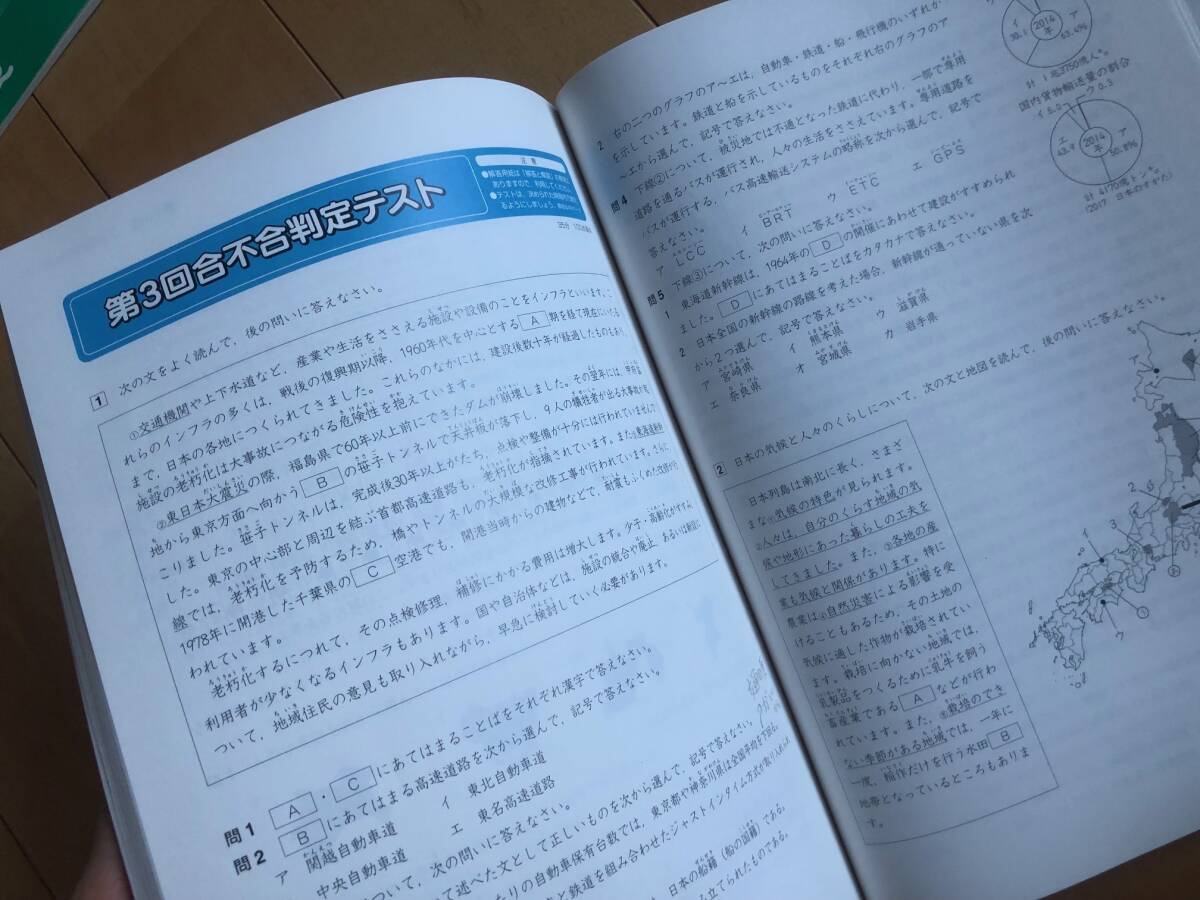 第3回合不合判定テスト
注意
●解答用紙は「解答と解説」の
ありますので，利用してください。
●テストは，決められた時間内で
るようにしましょう。
1 次の文をよく読んで，後の問いに答えなさい。
①交通機関や上下水道など，産業や生活をささえる施設や設備のことをインフラといいます。こ
れらのインフラの多くは，戦後の復興期以降，1960年代を中心とする A 期を経て現在にいたる
まで，日本の各地につくられてきました。これらのなかには，建設後数十年が経過したものもあり，
施設の老朽化は大事故につながる危険性を抱えています。
②東日本大震災の際，福島県で60年以上前にできたダムが崩壊しました。その翌年には，甲府盆
地から東京方面へ向かう B の笹子トンネルで天井板が落下し，9人の犠牲者が出る大事故が起
こりました。笹子トンネルは，完成後30年以上がたち，点検や整備が十分には行われていませんで
した。東京の中心部と周辺を結ぶ首都高速道路も，老朽化が指摘されています。また③東海道新幹
線では，老朽化を予防するため，橋やトンネルの大規模な改修工事が行われています。さらに，
1978年に開港した千葉県の C 空港でも，開港当時からの建物などで，耐震もふくめた改修が行
われています。
老朽化するにつれて，その点検修理，補修にかかる費用は増大します。少子・高齢化がすすみ，
利用者が少なくなるインフラもあります。国や自治体などは，施設の統合や廃止，あるいは新設に
ついて，地域住民の意見も取り入れながら，早急に検討していく必要があります。
問1 A ・ C にあてはまることばをそれぞれ漢字で答えなさい。
問2 B にあてはまる高速道路を次から選んで，記号で答えなさい。
ア 関越自動車道 イ 東北自動車道
中央自動車道 エ 東名高速道路
について，次の問いに答えなさい。
て述べた文として正しいものを次から選んで，記号で答えなさい。
たりの自動車保有台数では，東京都や神奈川県は全国平均を下回る。
と鉄道を組み合わせたジャストインタイム方式が取り入れ
日本の船籍（船の国籍）である。
立てられたものである。
2 右の二つのグラフのア～エは，自動車・鉄道・船・飛行機のいずれか
を示しています。鉄道と船を示しているものをそれぞれ右のグラフのア
～エから選んで，記号で答えなさい。
問4 下線②について，被災地では不通となった鉄道に代わり，一部で専用
道路を通るバスが運行され，人々の生活をささえています。専用道路を
バスが運行する，バス高速輸送システムの略称を次から選んで，記号で
答えなさい。
ア LCC イ BRT ウ ETC エ GPS
問5 下線③について，次の問いに答えなさい。
1 東海道新幹線は，1964年の D の開催にあわせて建設がすすめられ
ました。 D にあてはまることばをカタカナで答えなさい。
2 日本全国の新幹線の路線を考えた場合，新幹線が通っていない県を次
から2つ選んで，記号で答えなさい。
ア 宮崎県 イ 熊本県 ウ 滋賀県
エ 奈良県 オ 宮城県 カ 岩手県
イ 30.1
2014年
ア 63.4%
国内貨物輸送量の割合
ウ 0.3
エ 43.9
2014年
ア 50.8%
計 4170億トンキロ
(2017 日本のすがた)
2 日本の気候と人々のくらしについて，次の文と地図を読んで，後の問いに答えなさい。
日本列島は南北に長く，さまざ
まな①気候の特色が見られます。
②人々は，自分のくらす地域の気
候や地形にあった暮らしの工夫を
してきました。また，③各地の産
業も気候と関係があります。特に
農業は④自然災害による影響を受
けることもあるため，その土地の
気候に適した作物が栽培されてい
ます。栽培に向かない地域では，
乳製品をつくるために乳牛を飼う
畜産業である A などが行わ
れています。また，⑤栽培のでき
ない季節がある地域では，一年に
一度，稲作だけを行う水田 B
地帯となっているところもありま
す。
1
2
3
イ
ウ